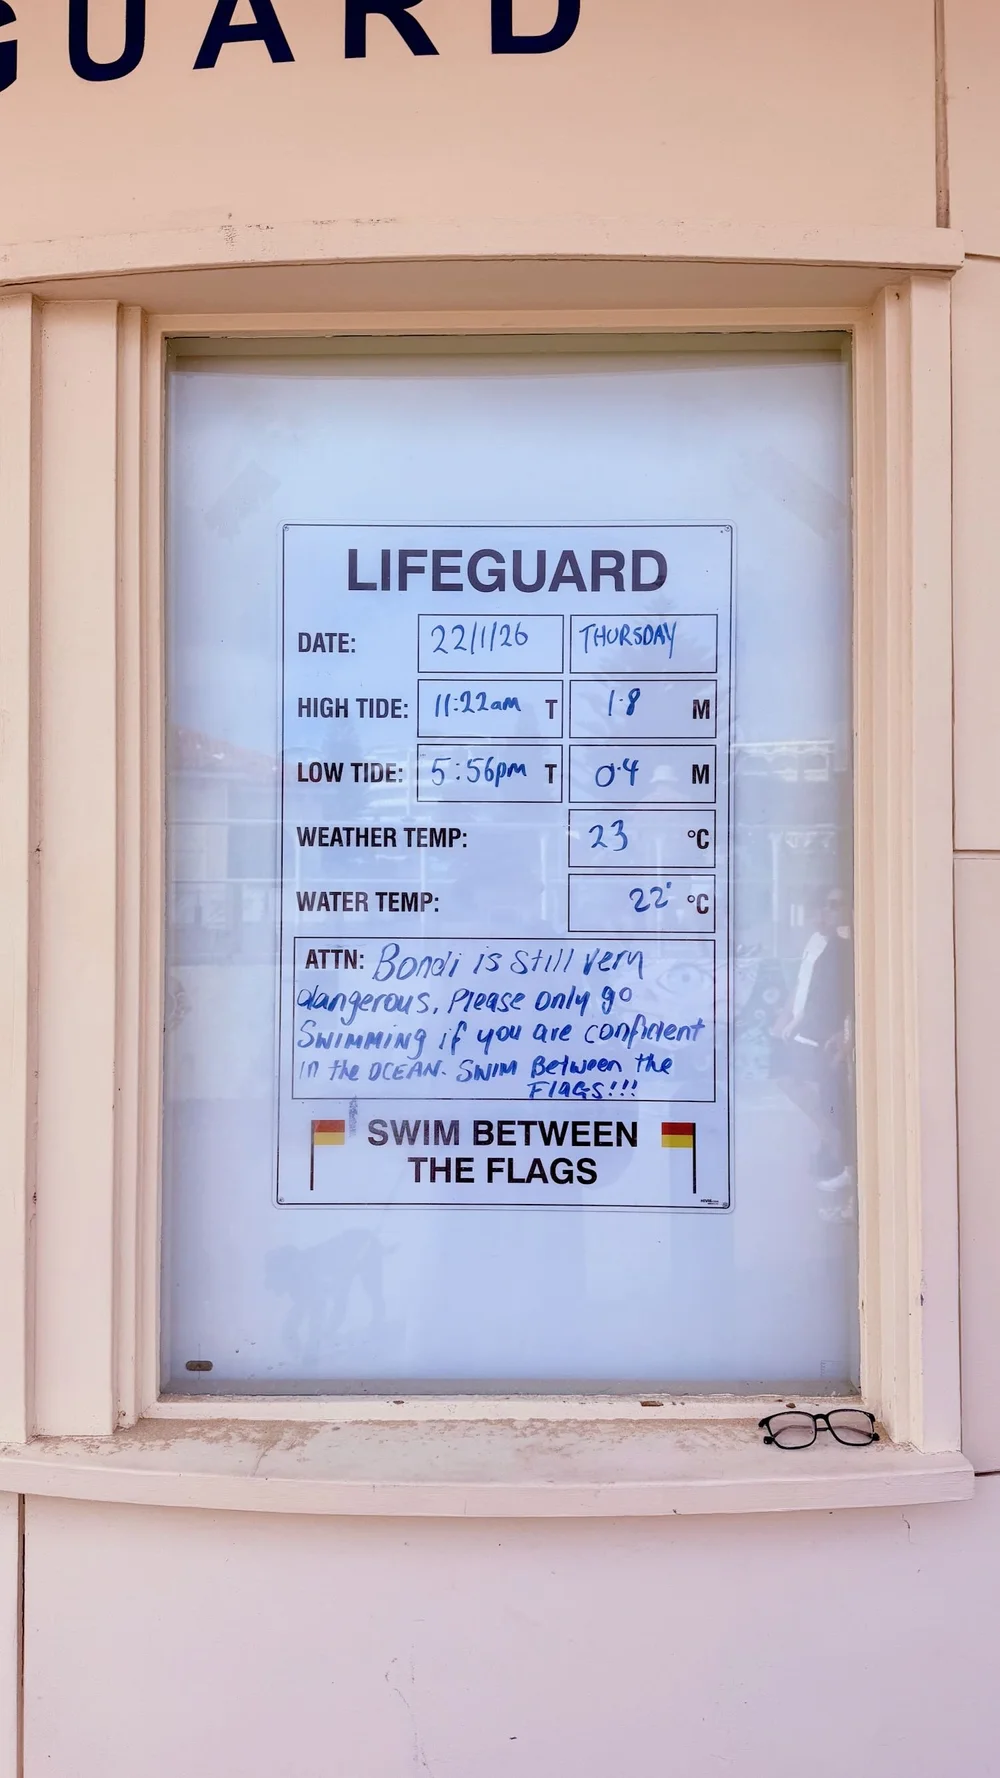 GUARD
LIFEGUARD
DATE: 22/1/26 THURSDAY
HIGH TIDE: 11:22am T 1.8 M
LOW TIDE: 5:56pm T 0.4 M
WEATHER TEMP: 23 °C
WATER TEMP: 22° °C
ATTN: Bondi is still very
dangerous, Please only go
SWIMMING if you are confident
in the OCEAN. SWIM Between the
FlAGS!!!
SWIM BETWEEN
THE FLAGS